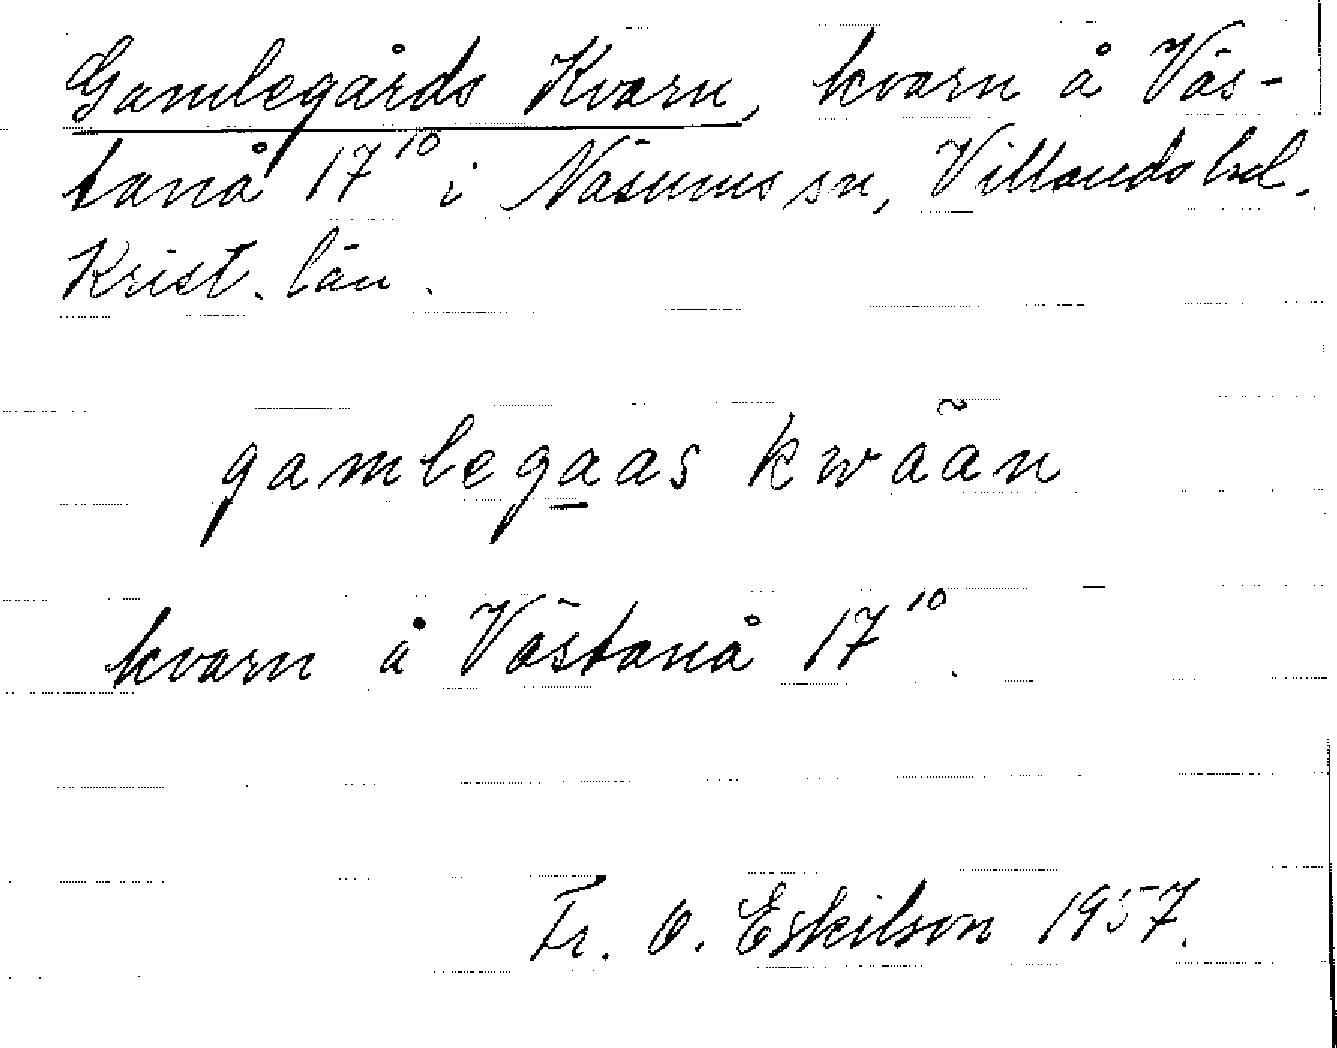 Gamlegårds Kvarn, kvarn å Väs-
tanå 17¹⁰ i Näsums sn, Villands hd.
Krist. län.
gamlegaas kwään
kvarn å Västanå 17¹⁰.
Fr. O. Eskilson 1957.